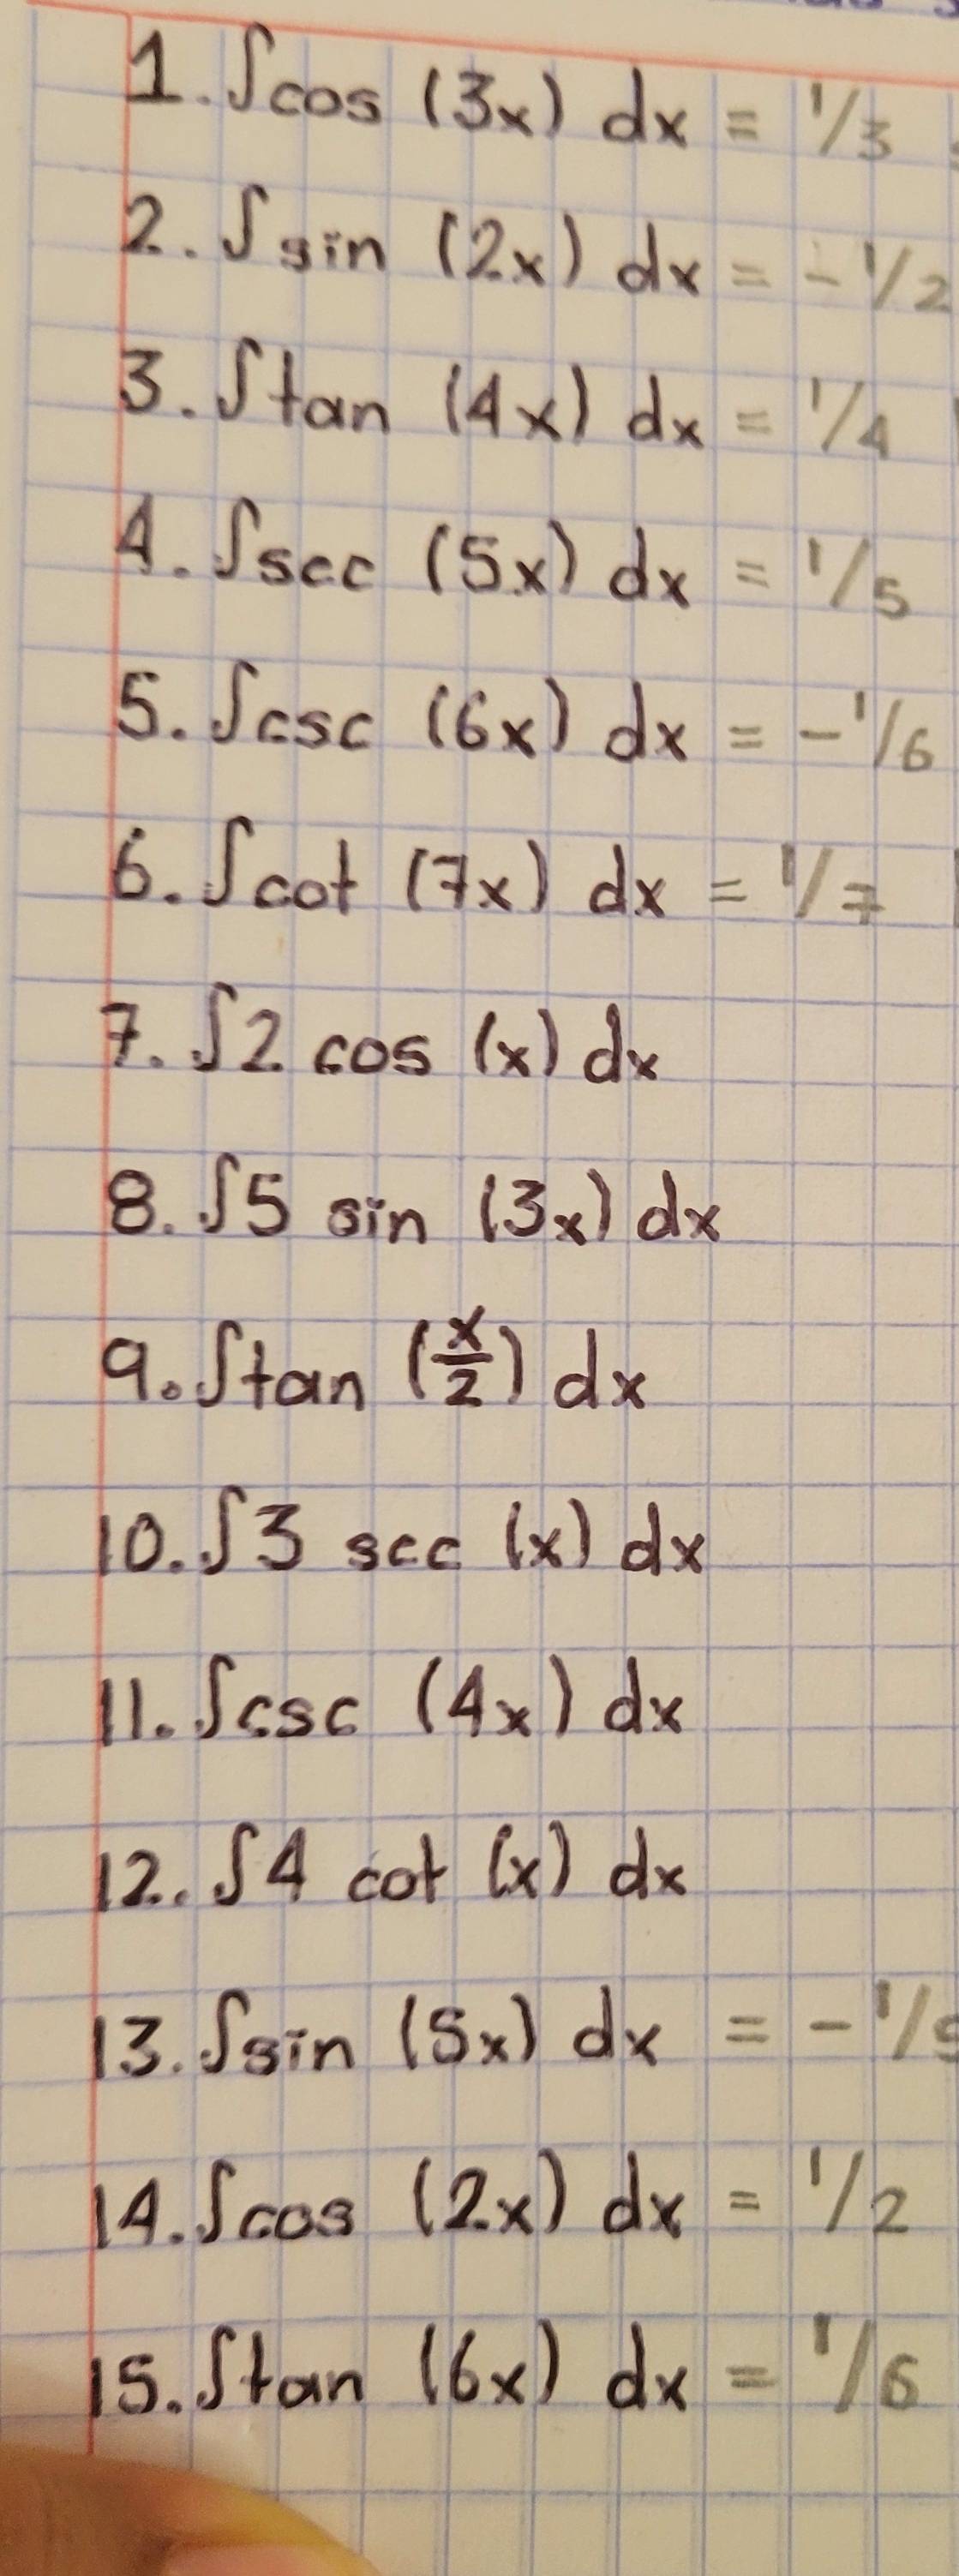 1. ∫cos (3x) dx = 1/3
2. ∫sin (2x) dx = - 1/2
3. ∫tan (4x) dx = 1/4
4. ∫sec (5x) dx = 1/5
5. ∫csc (6x) dx = - 1/6
6. ∫cot (7x) dx = 1/7
7. ∫2 cos (x) dx
8. ∫5 sin (3x) dx
9. ∫tan (x/2) dx
10. ∫3 sec (x) dx
11. ∫csc (4x) dx
12. ∫4 cot (x) dx
13. ∫sin (5x) dx = - 1/5
14. ∫cos (2x) dx = 1/2
15. ∫tan (6x) dx = 1/6